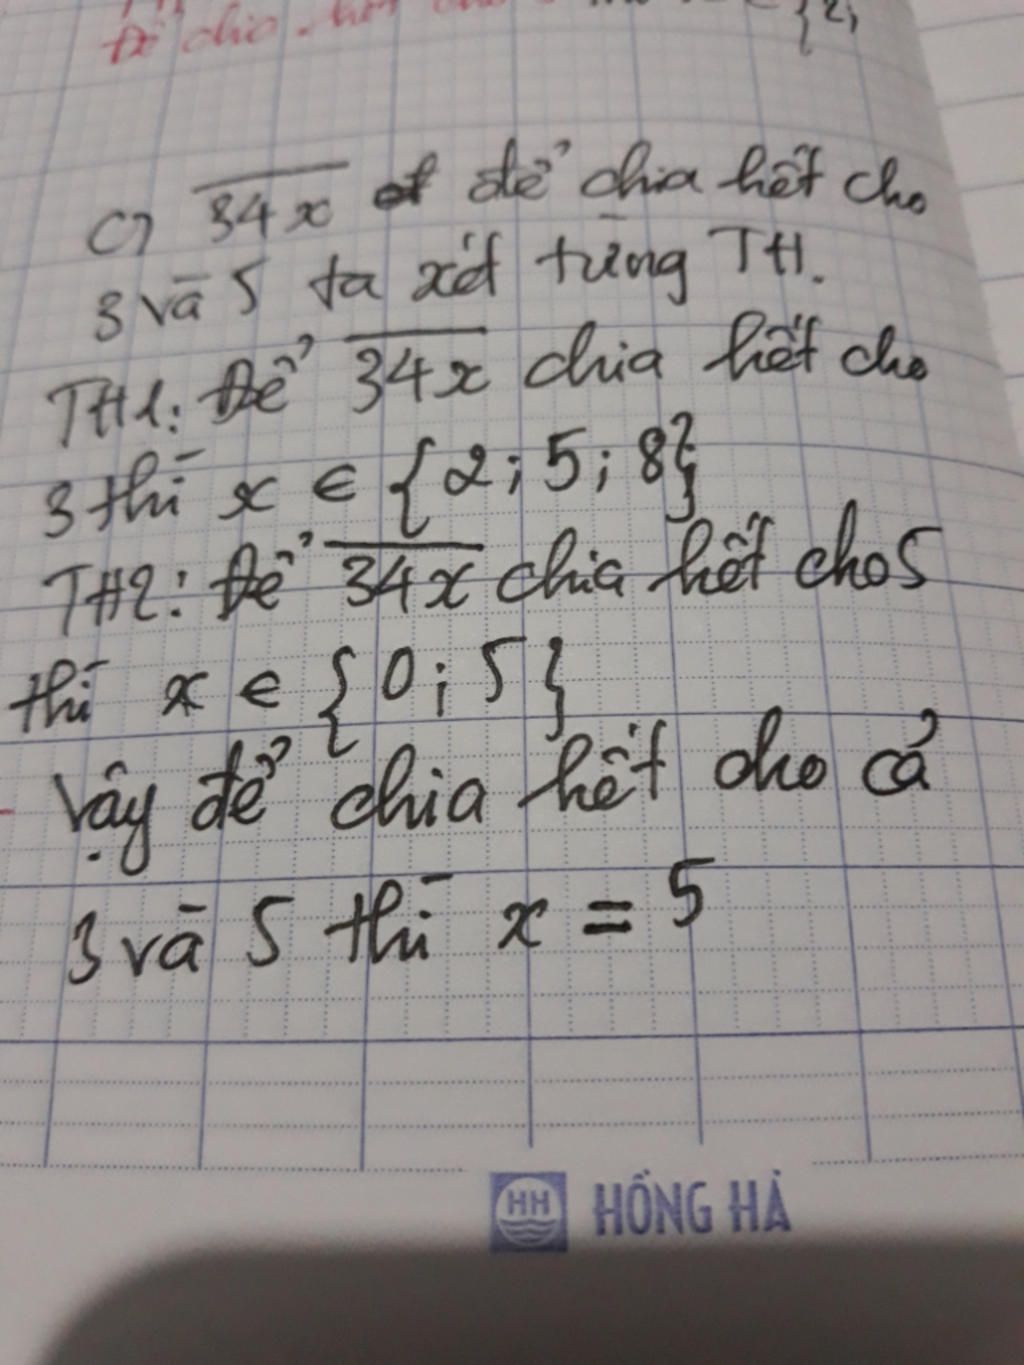 Để chia hết cho {2;
c) 34x để chia hết cho
3 và 5 ta xét từng TH.
TH1: Để 34x chia hết cho
3 thì x ∈ {2; 5; 8}
TH2: Để 34x chia hết cho 5
thì x ∈ {0; 5}
Vậy để chia hết cho cả
3 và 5 thì x = 5
HH HỒNG HÀ